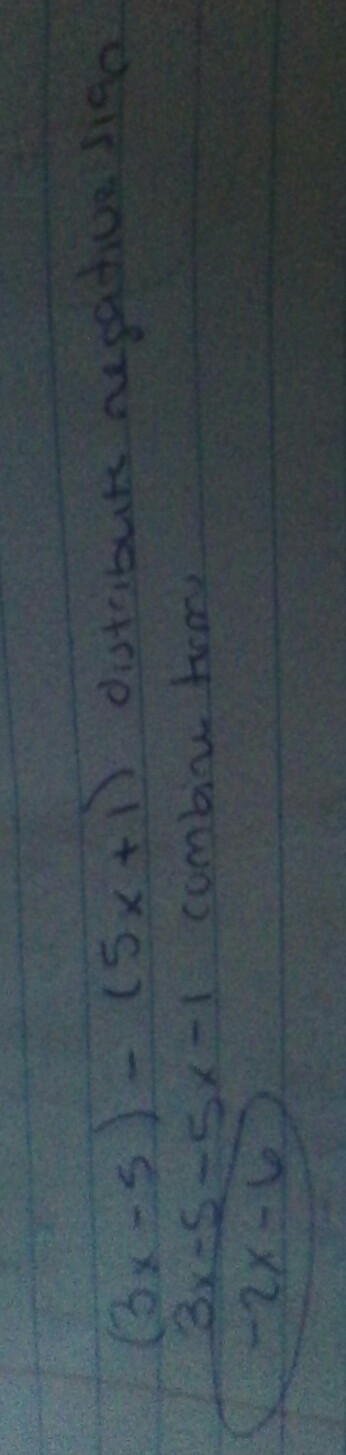 (3x-5) - (5x+1) distribute negative sign
3x-5-5x-1 combine terms
-2x-6